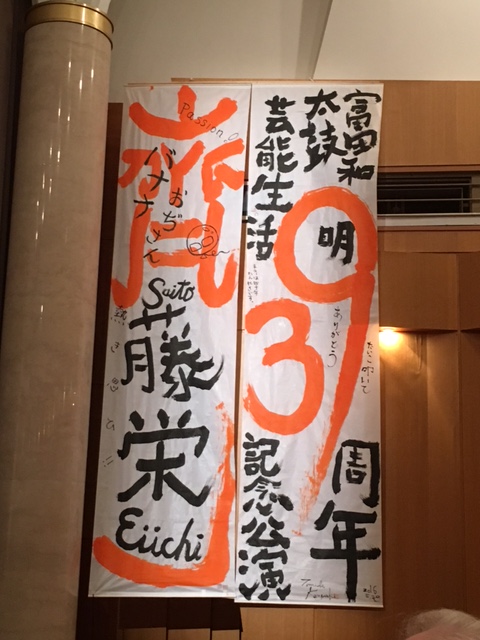 富田和
明
太鼓
芸能生活
39
周年
記念公演
ありがとう
齊
藤
栄
一
Passion
バナナ
おぢさん
Saito
Eiichi